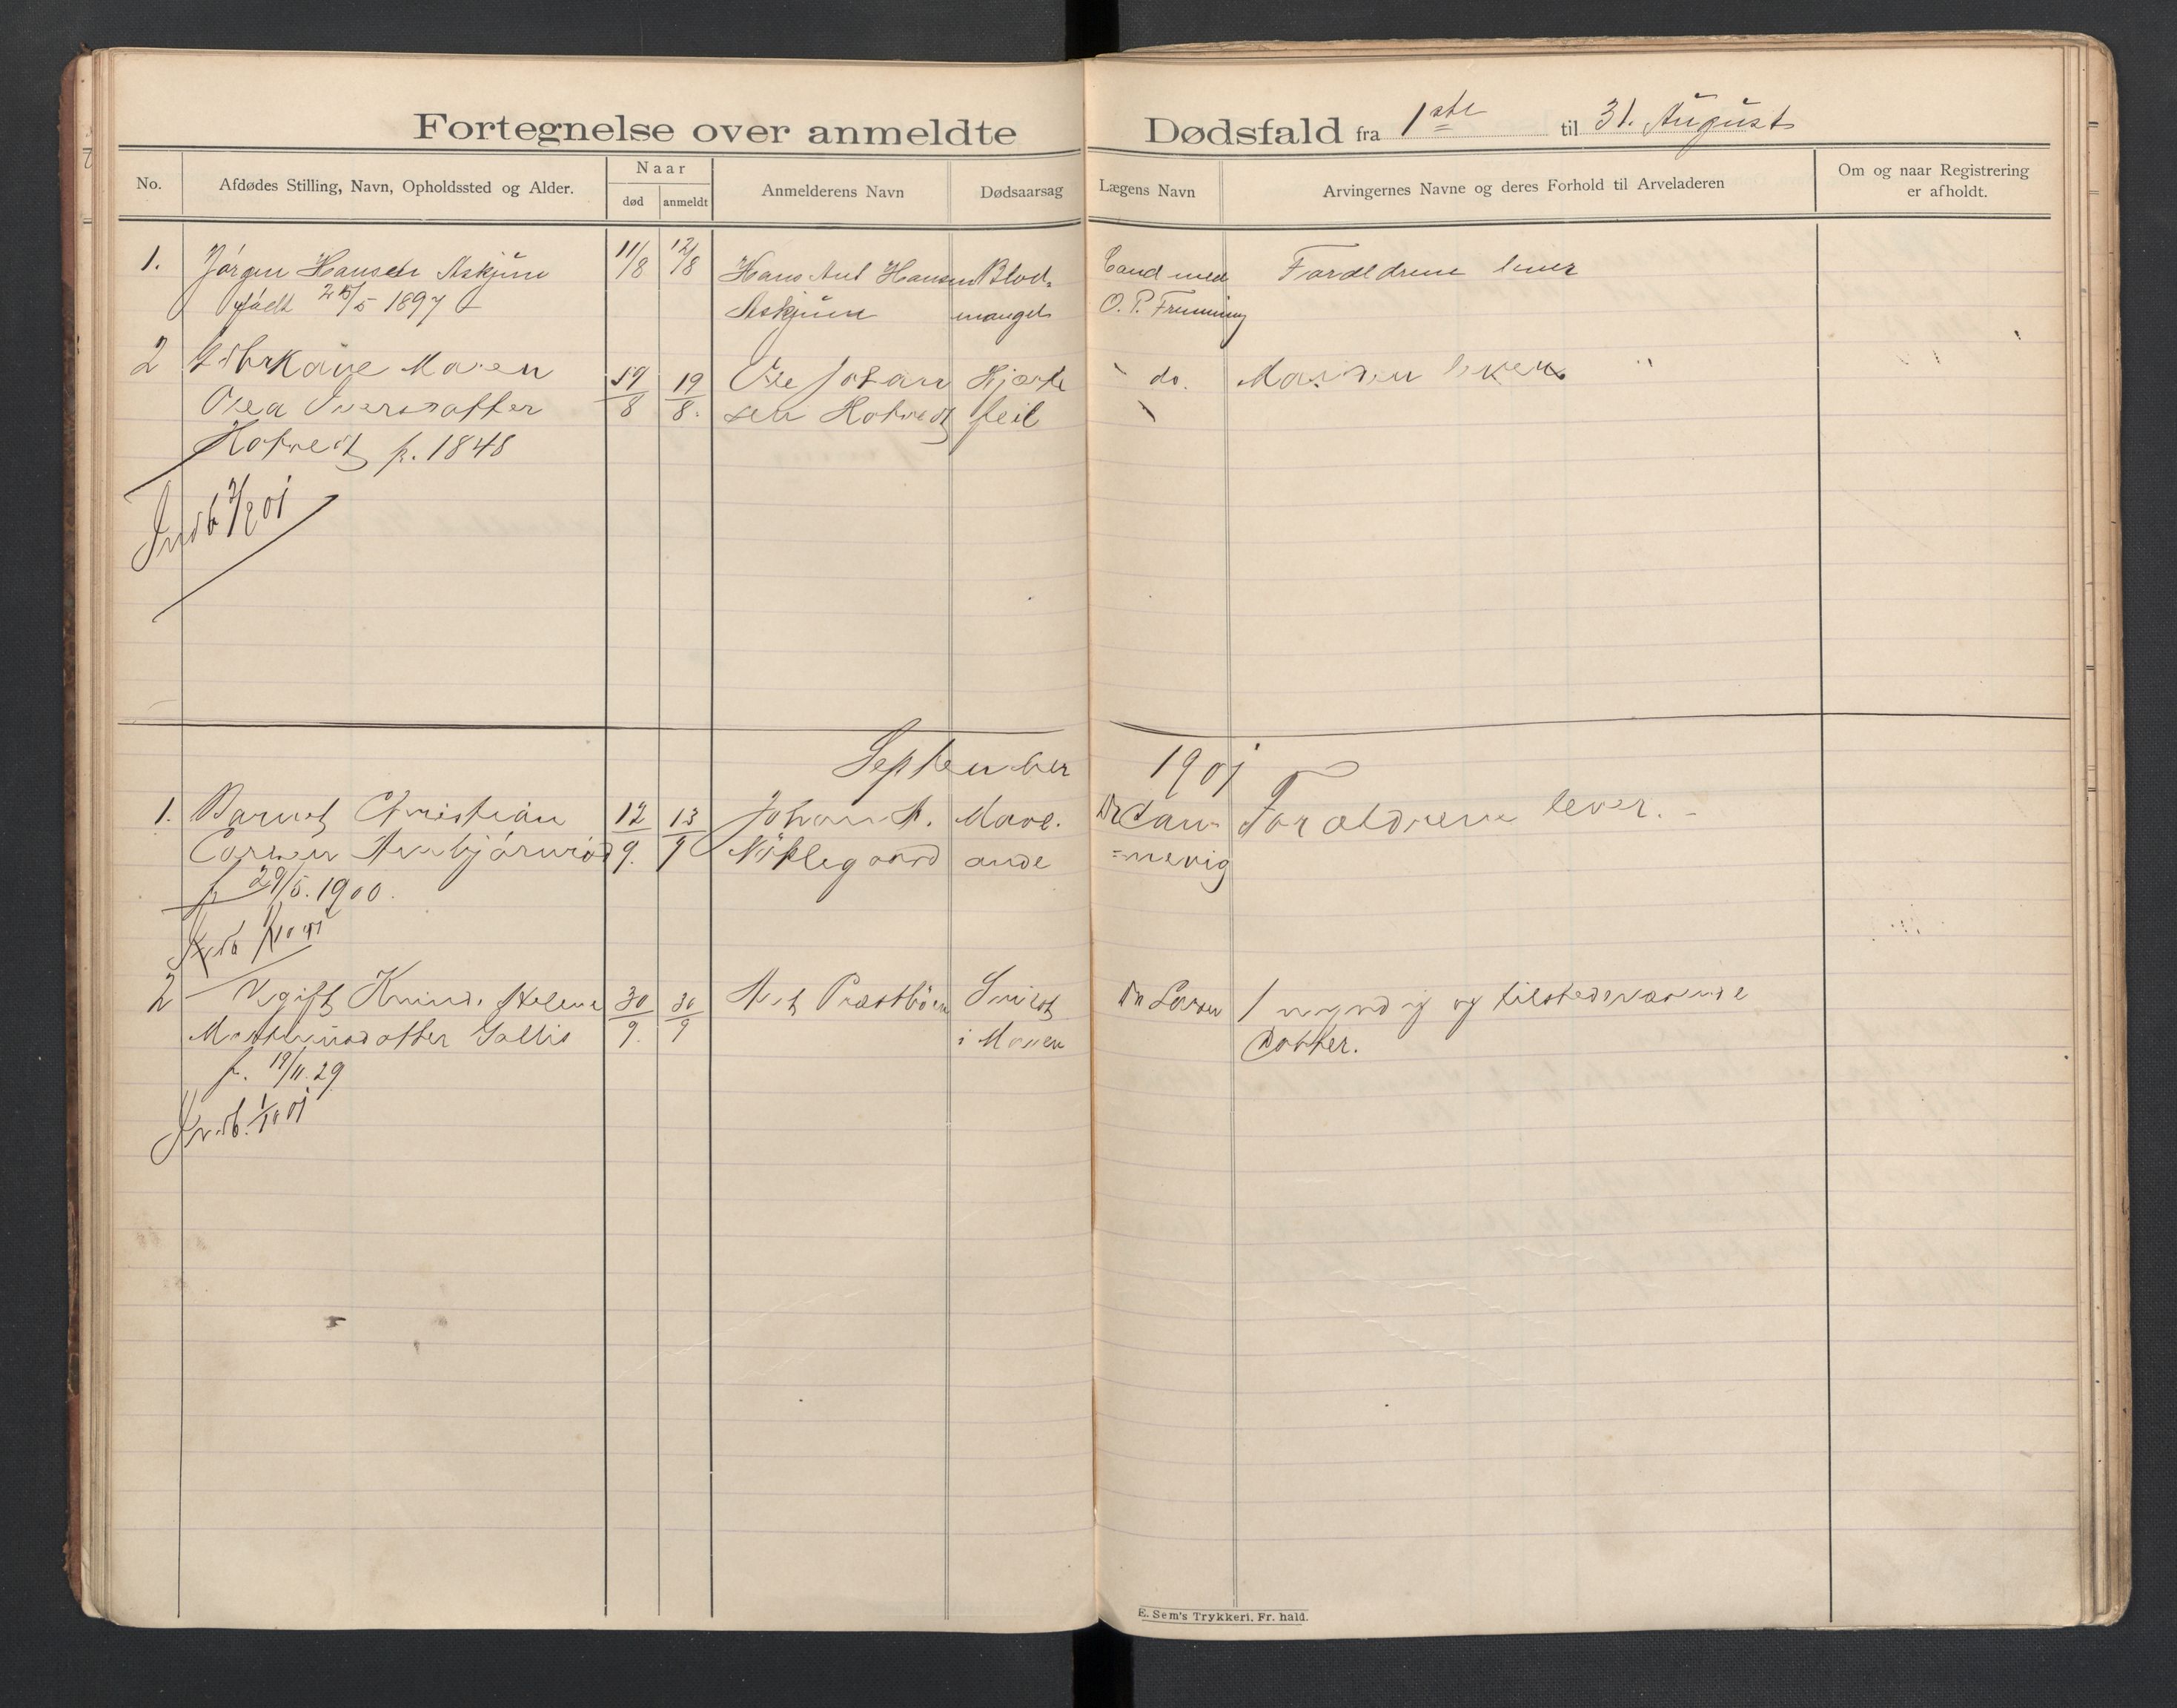 Fortegnelse over anmeldte Dødsfald fra 1ste til 31. August
No.
Afdødes Stilling, Navn, Opholdssted og Alder.
Naar
død
anmeldt
Anmelderens Navn
Dødsaarsag
Lægens Navn
Arvingernes Navne og deres Forhold til Arveladeren
Om og naar Registrering
er afholdt.
1. Jørgen Hansen Askjum 11/8 12/8 Hans Ant Hansen Blod- Cand med Forældrene lever
født 25/5 1897 Askjum mangel O. P.
2 Maren 19 Ole Johan Hjerte do. Manden lever
Olea Iversdatter 8 8. sen Hotvedt feil
Hotvedt f. 1848
Indb 2/9 01
September 1901
1. Barnet Christian 12 13 Johan A. Mave. Dr Dan- Forældrene lever. -
9. 9 Nøklegaard onde =nevig
f 29/5. 1900.
Indb
2 Ugift Helene 30 30 Ant Præstbøen Svulst Dr Larsen 1 myndig og tilstedeværende
9. 9 i Maven Datter.
f. 19/11.29
Indb. 1/10 01
E. Sem's Trykkeri, Fr. hald.